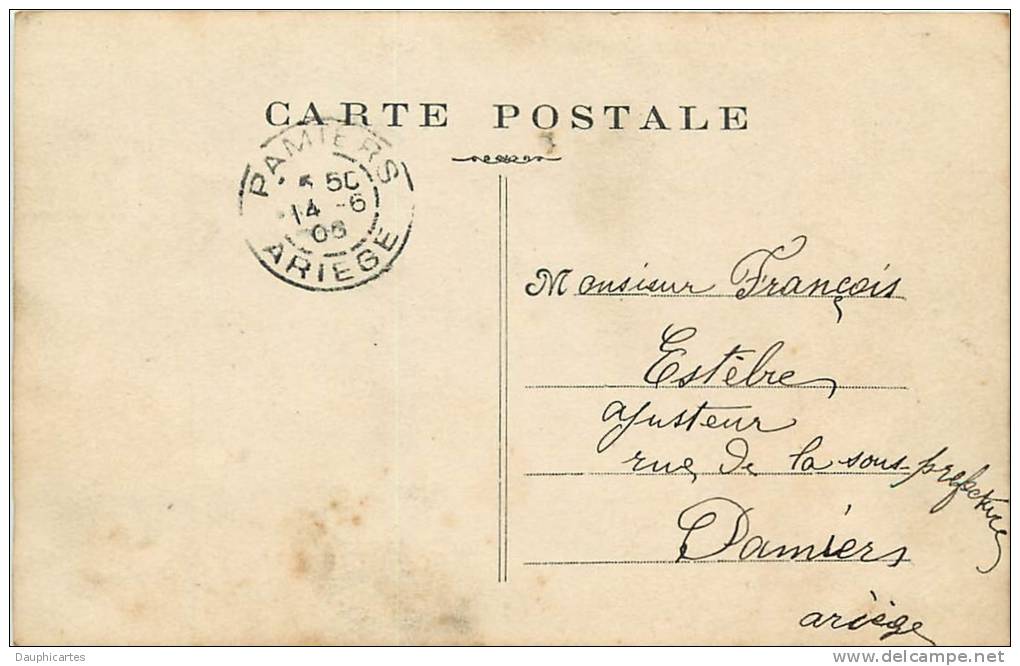 CARTE POSTALE
PAMIERS
5 50
14 -6
06
ARIEGE
Monsieur François
Estèbre
ajusteur
rue de la sous-prefecture
Pamiers
ariège
Dauphicartes
delcampe.net